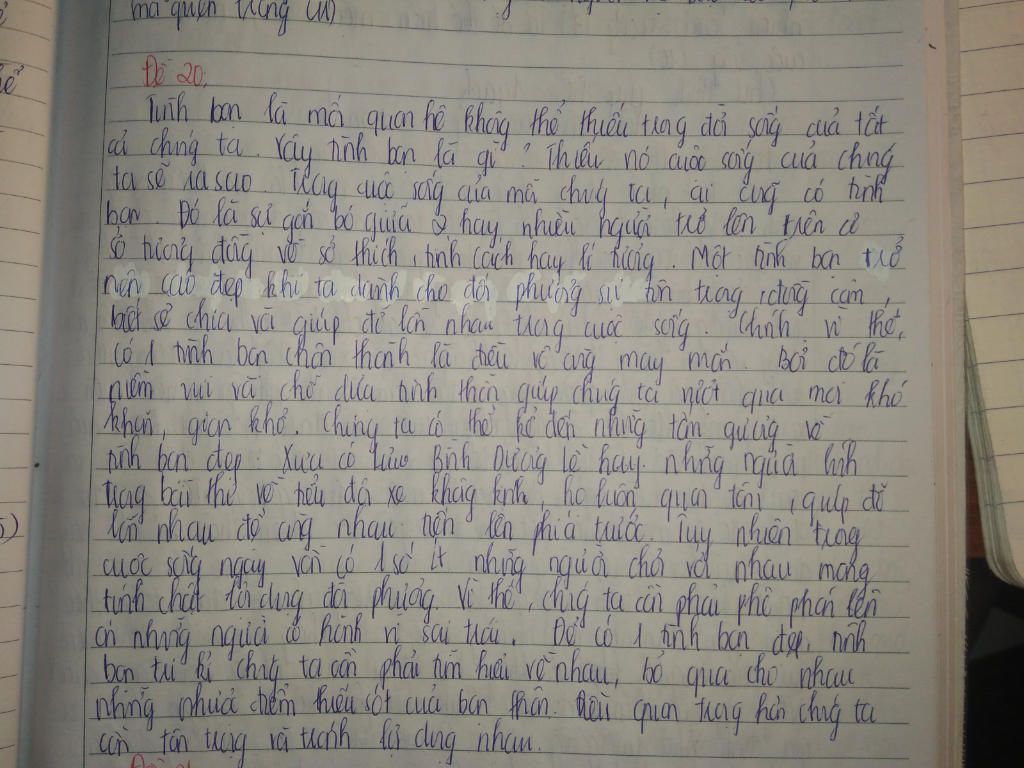 mà quên trong cu)
Đề 20:
Tình bạn là mối quan hệ không thể thiếu trong đời sống của tất
cả chúng ta. Vậy tình bạn là gì? Thiếu nó cuộc sống của chúng
ta sẽ ra sao. Trong cuộc sống của mỗi chúng ta, ai cũng có tình
bạn. Đó là sự gắn bó giữa 2 hay nhiều người trở lên trên cơ
sở tương đồng về sở thích, tính cách hay lí tưởng. Một tình bạn trở
nên cao đẹp khi ta dành cho đối phương sự tôn trọng, đồng cảm,
biết sẻ chia và giúp đỡ lẫn nhau trong cuộc sống. Chính vì thế,
có 1 tình bạn chân thành là điều vô cùng may mắn. Bởi đó là
niềm vui và chỗ dựa tinh thần giúp chúng ta vượt qua mọi khó
khăn, gian khổ. Chúng ta có thể kể đến những tấm gương về
tình bạn đẹp: Xưa có Lưu Bình Dương Lễ hay những người lính
trong bài thơ về tiểu đội xe không kính, họ luôn quan tâm, giúp đỡ
lẫn nhau để cùng nhau tiến lên phía trước. Tuy nhiên trong
cuộc sống ngày vẫn có 1 số ít những người chơi với nhau mang
tính chất lợi dụng đối phương. Vì thế, chúng ta cần phải phê phán lên
án những người có hành vi sai trái. Để có 1 tình bạn đẹp, tình
bạn tri kỉ chúng ta cần phải tìm hiểu về nhau, bỏ qua cho nhau
những nhược điểm thiếu sót của bản thân. Điều quan trọng hơn chúng ta
cần tôn trọng và tránh lợi dụng nhau.